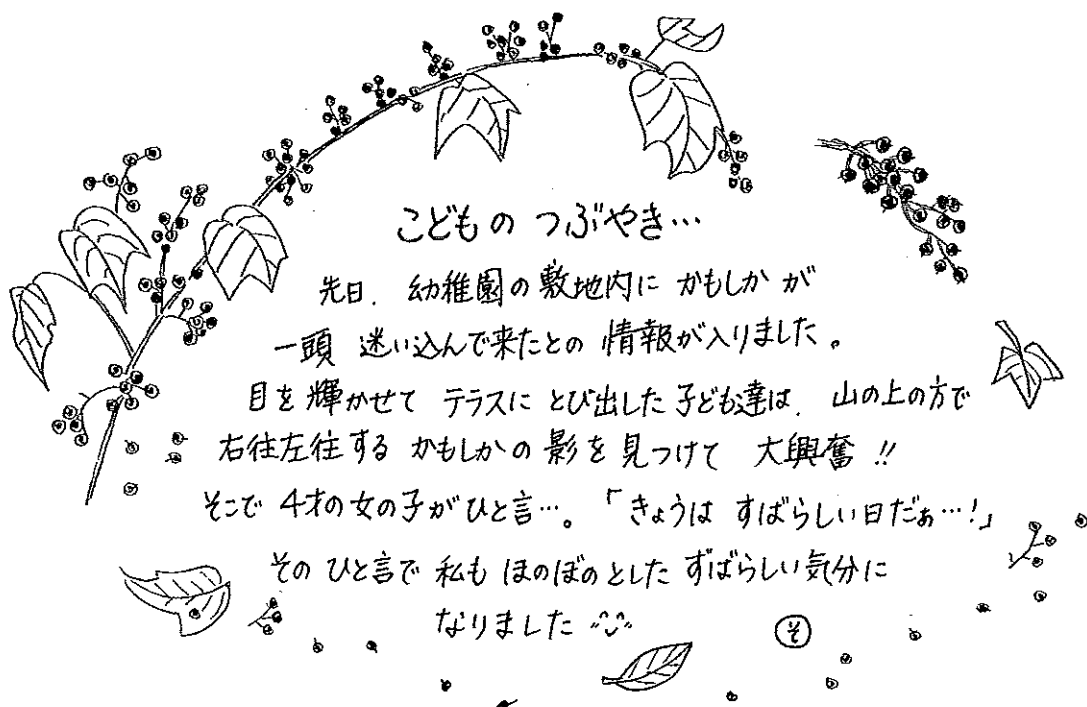 こどものつぶやき…
先日、幼稚園の敷地内に かもしか が
一頭 迷い込んで来たとの 情報が入りました。
目を輝かせて テラスに とび出した子ども達は、山の上の方で
右往左往する かもしかの影を見つけて 大興奮!!
そこで 4才の女の子がひと言…。「きょうは すばらしい日だぁ…!」
そのひと言で 私も ほのぼのとした すばらしい気分に
なりました
そ